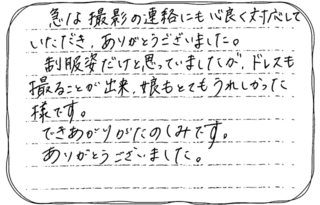 急な撮影の連絡にも心良く対応して
いただき、ありがとうございました。
制服姿だけと思っていましたが、ドレスも
撮ることが出来、娘もとてもうれしかった
様です。
できあがりがたのしみです。
ありがとうございました。